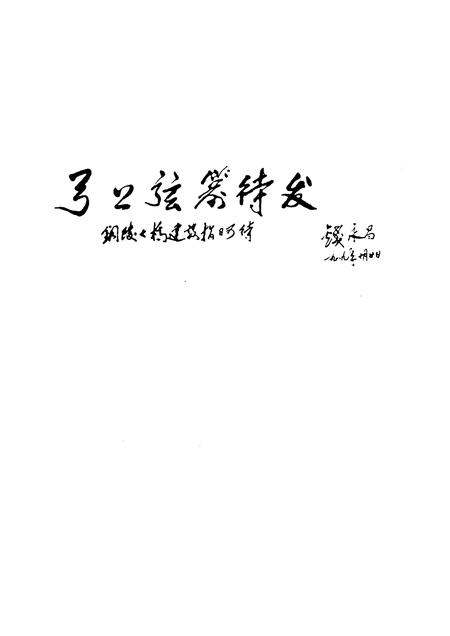 弓上弦箭待发
铜陵大桥建设指日可待
钱永昌
一九九〇年 月廿日